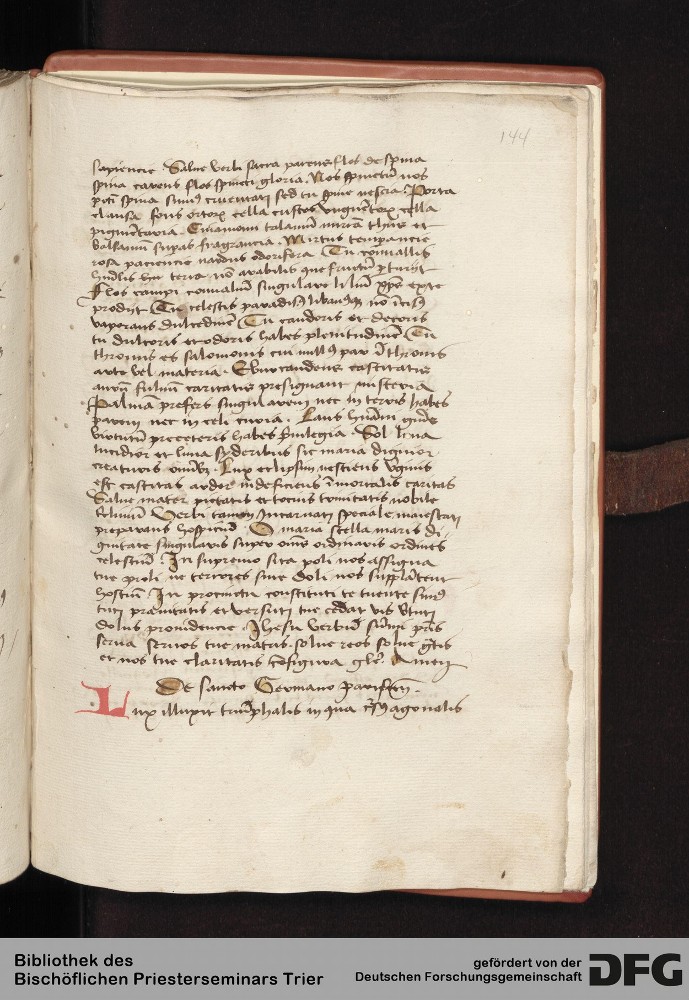 144
sapiencie Salue verbi sacra parens flos de spina
spina carens flos spineti gloria. Nos spinetū nos
pcti spina sumꝰ cruentati sed tu spine nescia. Porta
clausa fons ortoꝝ cella custos vngentoꝝ cella
pigmētaria. Cinamomi calamū mirrā thus et
balsamū supas fragrancia. Mirtus temperancie
rosa paciencie nardus odorifera Tu conuallis
hūilis terra nō arabilis que fructū ꝑturijt
Flos campi conualliū singulare liliū xp̄s ex te
prodijt Tu celestis paradisꝰ nō īcisꝰ
vaporans dulcedinē Tu candoris et decoris
tu dulcoris et odoris habes plenitudinē Tu
thronus es salomonis cui nullꝰ par ī thronis
arte vel materia. Ebur candens castitatis
aurū fuluum caritatis presignant misteria
Palmā prefers singularem nec in terris habes
parem nec in celi curia. Laus hūani gn̄ris
virtutū pre ceteris habes p̄uilegia. Sol luna
lucidior et luna syderibus sic maria dignior
creaturis omībꝫ. Lux eclipsim nesciens vginis
est castitas ardor indeficiens īmortalis caritas
Salue mater pietatis et tocius trinitatis nobile
tricliniū Verbi tamen incarnati speciale maiestati
preparans hospiciū. O maria stella maris di-
gnitate singularis super om̄s ordinaris ordines
celestiū. In supremo sita poli nos assigna
tue proli ne terrores siue doli nos supplantent
hostiū In procinctu constituti te tuente simꝰ
tuti prauitatis et versuti tue cedat vis vtuti
dolus prouidencie. Ihesu verbū sūmi pr̄is
serua seruos tue matris. solue reos solue gr̄tis
et nos tue claritatis cōfigura gl̄e. Amen
De sancto Germano Parisien̄.
Lux illuxit triūphalis in qua